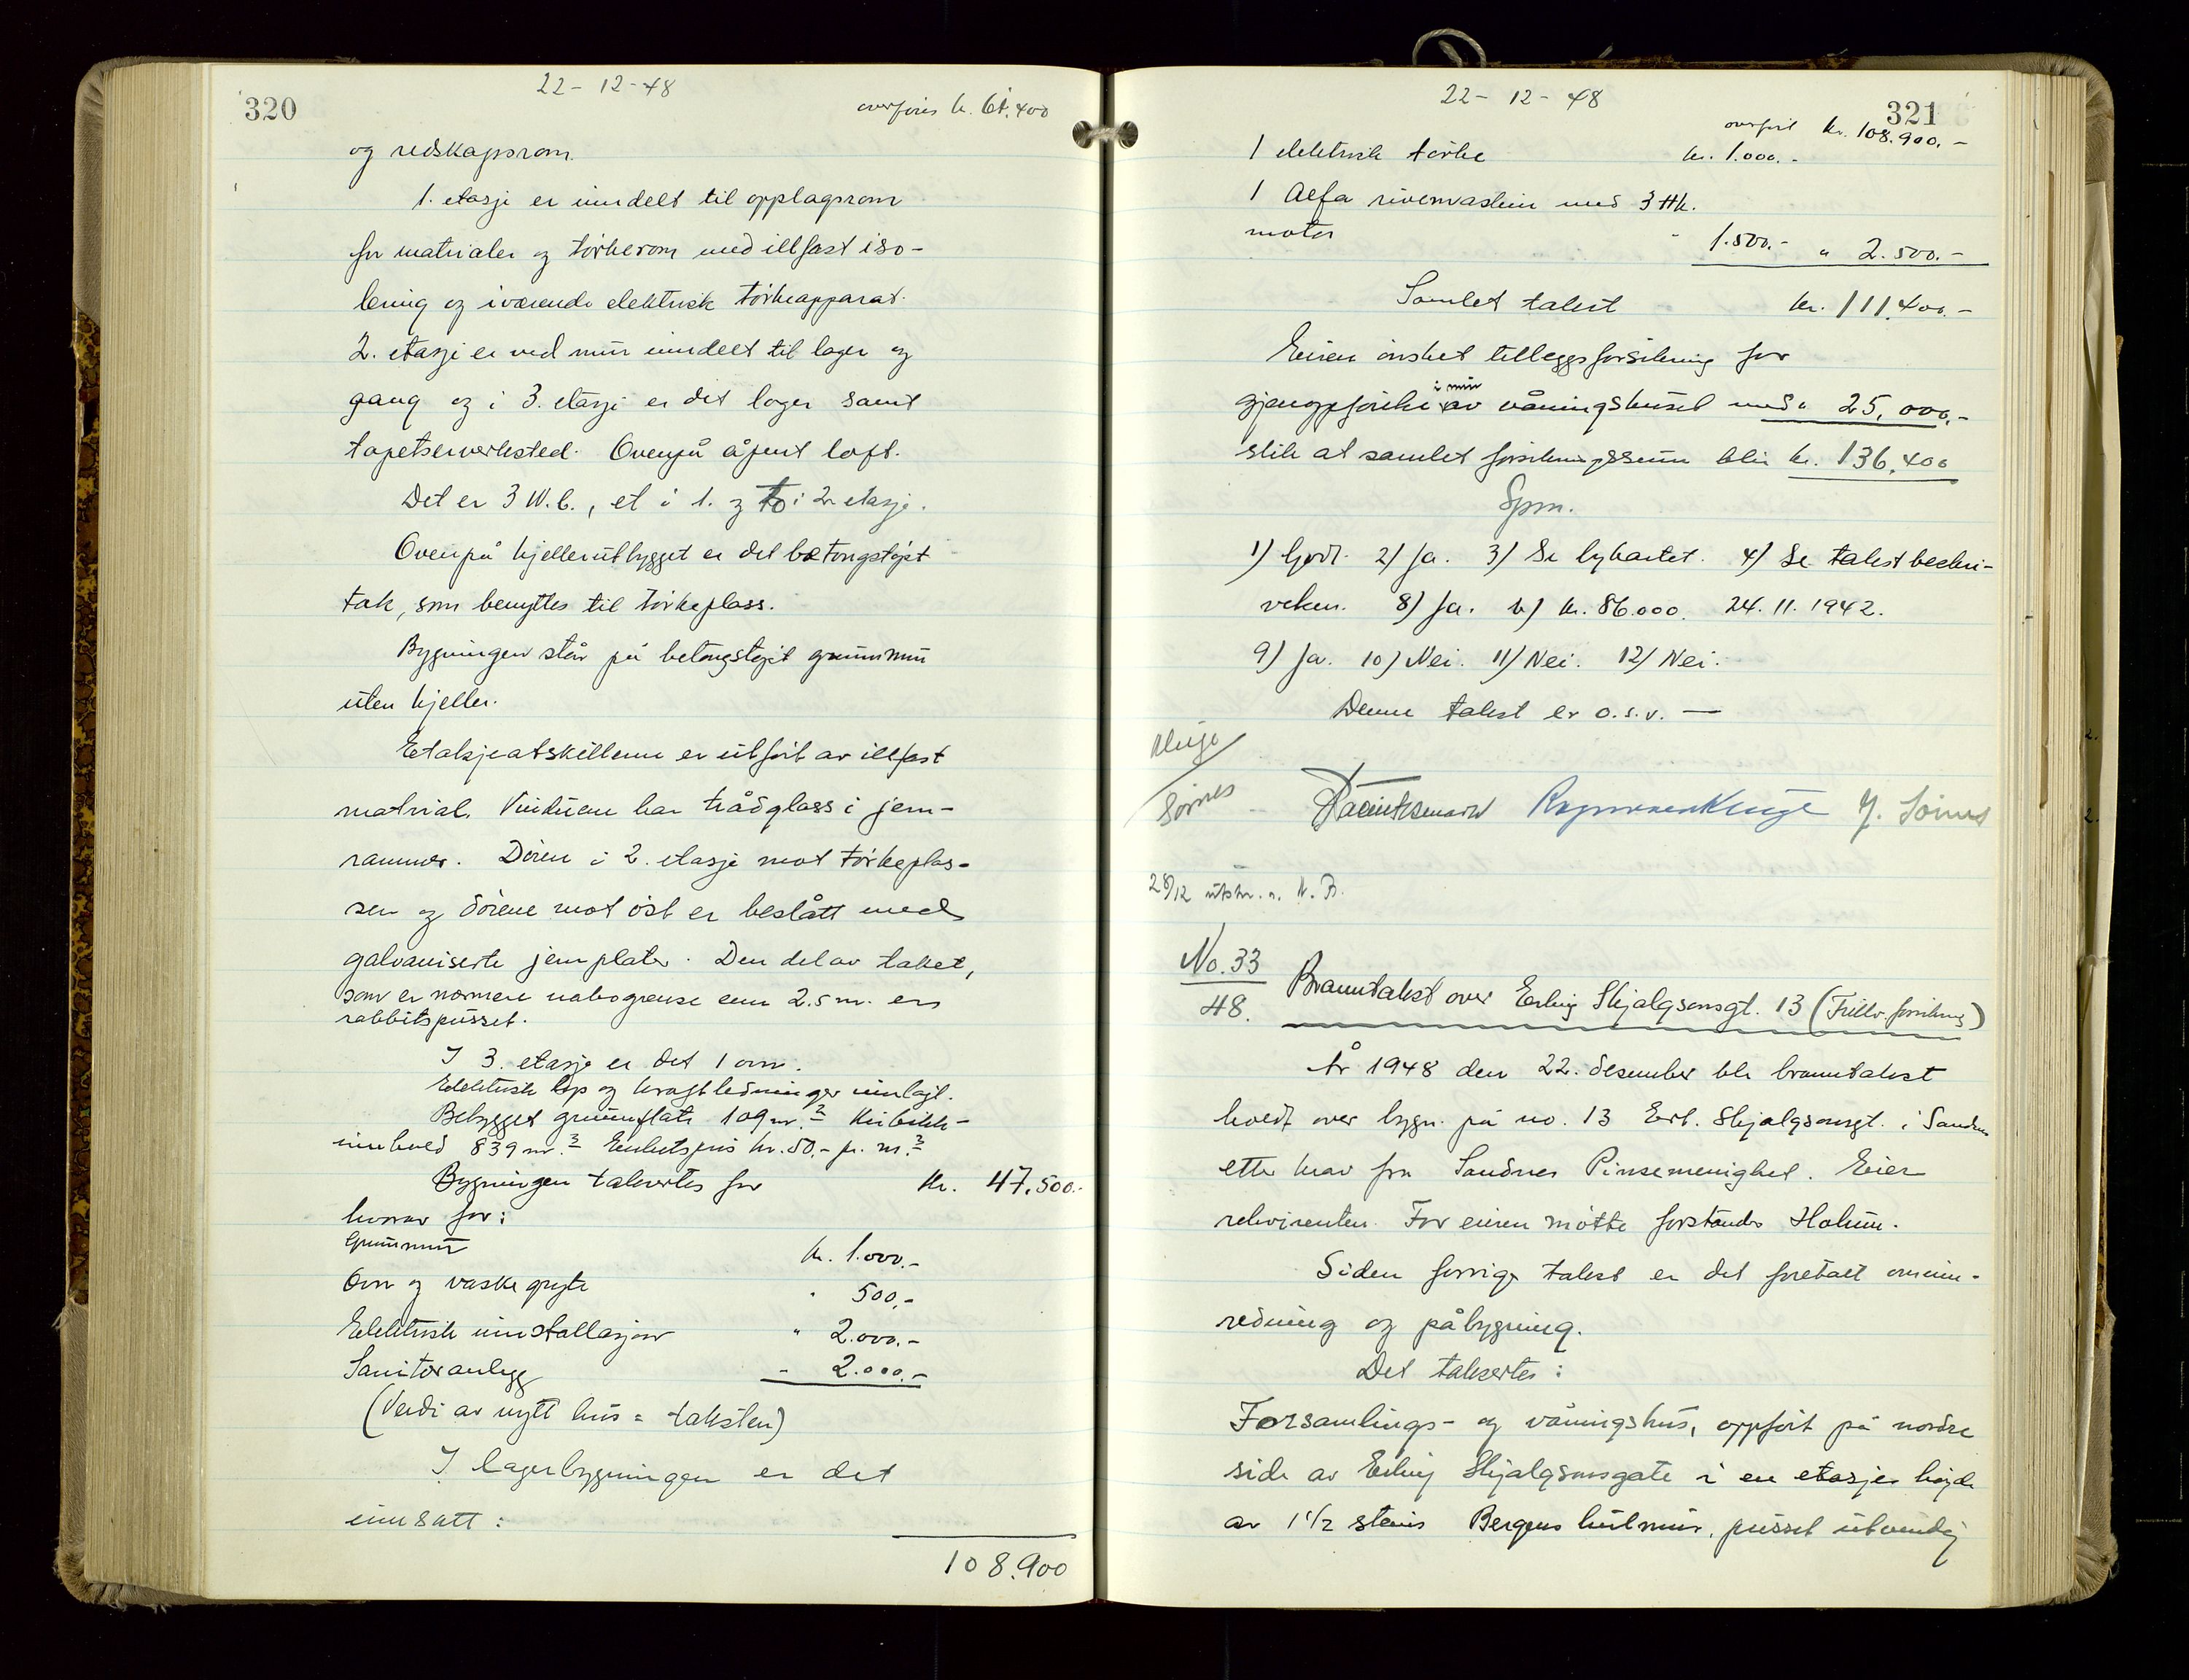 320
22-12-48
overføres kr. 61.400
og redskapsrom.
1. etasje er inndelt til opplagsrom
for matrialer og tørkerom med illfast iso-
lering og iværende elektrisk tørkeapparat.
2. etasje er ved mur inndelt til lager og
gang og i 3. etasje er det lager samt
tapetserverksted. Ovenpå åpent loft.
Det er 3 W.C., et i 1. og to i 2. etasje.
Ovenpå kjellerutbygget er det betongstøpt
tak, som benyttes til tørkeplass.
Bygningen står på betongstøpt grunnmur
uten kjeller.
Etasjeatskillerne er utført av illfast
matrial. Vinduene har trådglass i jern-
rammer. Døren i 2. etasje mot tørkeplas-
sen og dørene mot øst er beslått med
galvaniserte jernplater. Den del av taket,
som er nærmere nabogrense enn 2.5 m. er
rabbitspusset.
I 3. etasje er det 1 ovn.
Elektrisk lys og kraftledninger innlagt.
Bebygget grunnflate 109 m.² Kubikk-
innhold 839 m.³ Enhetspris kr. 50.- pr. m.³
Bygningen takseres for kr. 47.500.-
hvorav for:
Grunnmur kr. 1.000.-
Ovn og vaskegryte " 500.-
Elektrisk installasjon " 2.000.-
Sanitæranlegg " 2.000.-
(Verdi av nytt hus = taksten)
I lagerbygningen er det
innsatt:
108.900
22-12-48
321
overført kr. 108.900.-
1 elektrisk tørke kr. 1.000.-
1 Alfa rivemaskin med 3 Hk.
motor " 1.500.- " 2.500.-
Samlet takst kr. 111.400.-
Eieren ønsket tilleggsforsikring for
gjenoppførelse i mur av våningshuset med " 25.000.-
slik at samlet forsikringssum blir kr. 136.400
Spm.
1) Godt. 2) Ja. 3) Se bykartet. 4) Se takstbeskri-
velsen. 8) Ja. b) kr. 86.000. 24.11.1942.
9) Ja. 10) Nei. 11) Nei. 12) Nei.
Denne takst er o.s.v. —
Kluge
Sørnes
Kluge J. Sørnes
28/12 utskr. N. B.
No. 33
48.
Branntakst over Erling Skjalgsonsgt. 13 (Frillv. forsikring)
År 1948 den 22. desember ble branntakst
holdt over bygn. på no. 13 Erl. Skjalgsonsgt. i Sandnes
etter krav fra Sandnes Pinsemenighet. Eier
rekvirenten. For eieren møtte forstander Holum.
Siden forrige takst er det foretatt ominn-
redning og påbygning.
Det takseres:
Forsamlings- og våningshus, oppført på nordre
side av Erling Skjalgsonsgate i en etasjes høyde
av 1 1/2 steins Bergens hulmur, pusset utvendig